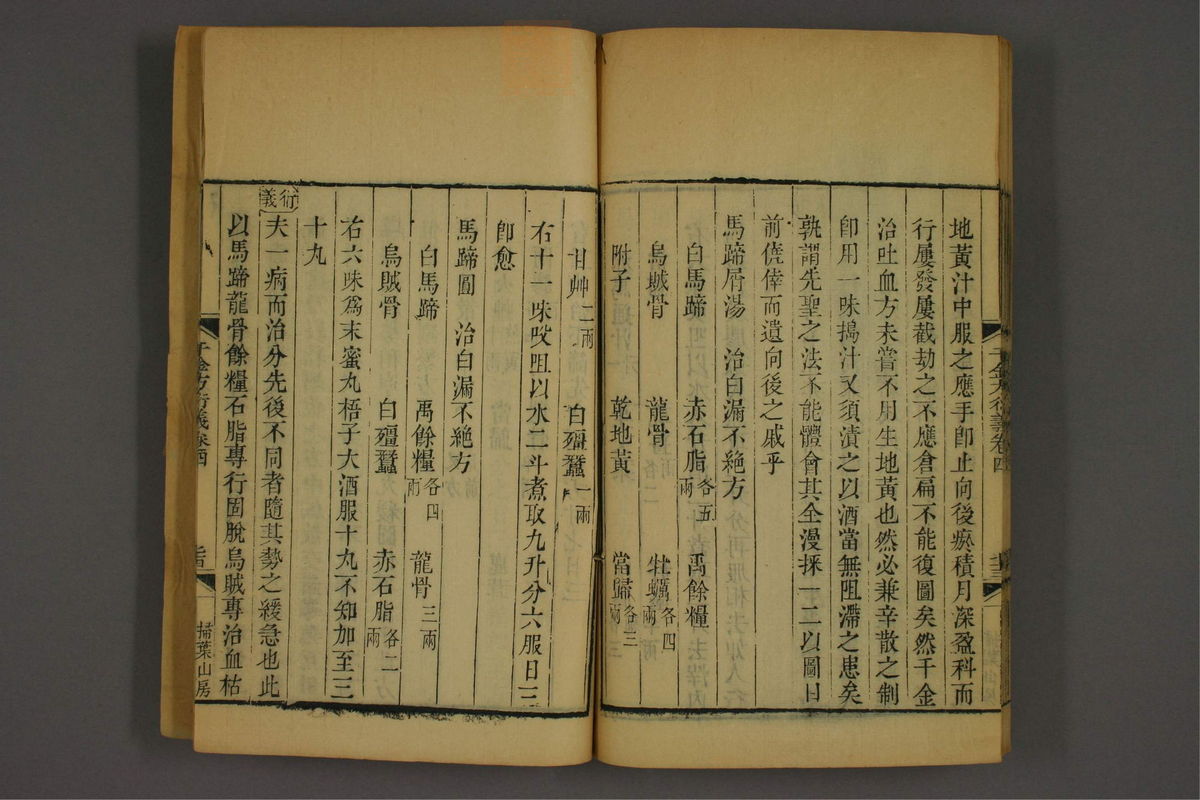 地黃汁中服之應手卽止向後瘀積月深盈科而
行屢發屢截劫之不應倉扁不能復圖矣然千金
治吐血方未嘗不用生地黃也然必兼辛散之制
卽用一味搗汁又須漬之以酒當無阻滯之患矣
孰謂先聖之法不能體會其全漫採一二以圖目
前僥倖而遺向後之戚乎
馬蹄屑湯 治白漏不絕方
白馬蹄 赤石脂各五兩 禹餘糧
烏賊骨 龍骨 牡蠣各四兩
附子 乾地黃 當歸各三兩
甘艸二兩 白殭蠶一兩
右十一味㕮咀以水二斗煮取九升分六服日三
卽愈
馬蹄圓 治白漏不絕方
白馬蹄 禹餘糧各四兩 龍骨三兩
烏賊骨 白殭蠶 赤石脂各二兩
右六味爲末蜜丸梧子大酒服十丸不知加至三
十丸
衍義
夫一病而治分先後不同者隨其勢之緩急也此
以馬蹄龍骨餘糧石脂專行固脫烏賊專治血枯
千金方衍義卷四
掃葉山房